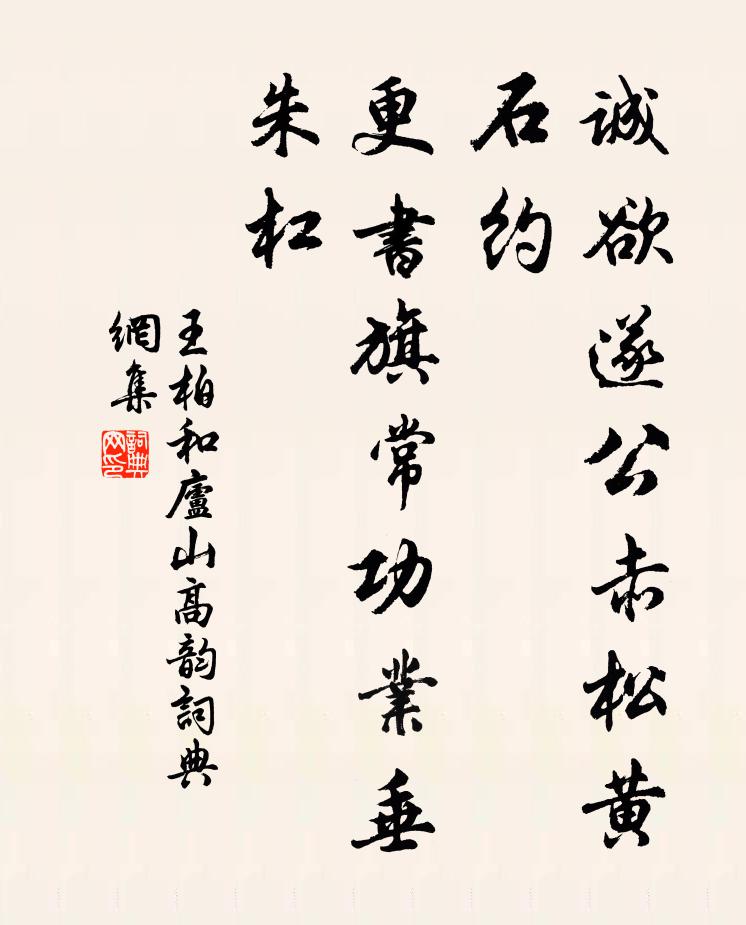 誠欲遂公赤松黄
石約
更書旗常功業垂
朱杠
王柏和廬山高韵詞典
網集
詞典
网印